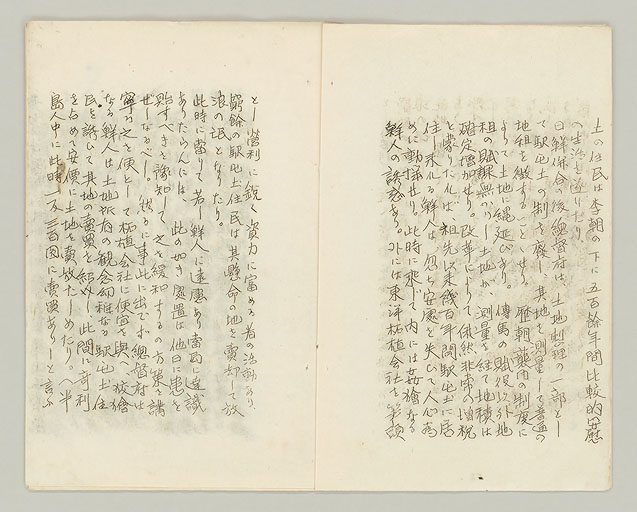 土の住民は李朝の下に五百餘年間比較的安慰
の生活を送りたり
日韓併合の後總督府は、土地整理の一部とし
て駅屯土の制を廢し、其地を測量して普通の
地租を徴することとせり。歴朝襲用の制度に
よつて土地に繩延びあり。傳馬の賦役以外地
租の賦課無かりし土地が、測量を経て地積は
確定増加せり。改革によりて俄然非常の増税
と変り化し、祖先以来幾百年間駅屯土に居
住し来れる鮮人は、忽ち安慰を失ひて人心為
めに動揺せり。此時に乗じて内には奸獪なる
鮮人の誘惑あり。外には東洋拓植会社を筆頭
とし営利に鋭く資力に富める者の活動あり、
窮餘の駅屯土住民は其懸命の地を賣却して放
浪の氓となりたり。
此時に當りて若し鮮人に遠慮あり官民に達識
ありたらんには、此の如き處置は他日に患を
貽すべきを豫知して之を緩和するの方策を講
ぜしなるべし。然るに事此に出でず總督府は
寧ろ之を便として拓植会社に便宜を與へ、狡獪
なる鮮人は土地所有の観念幼稚なる駅屯土住
民を誘ひて其地の賣買を紹介し此間に奇利
を占めて安價に土地を賣放たしめたり。(半
島人中に此時一反三百円に賣買ありしと言ふ